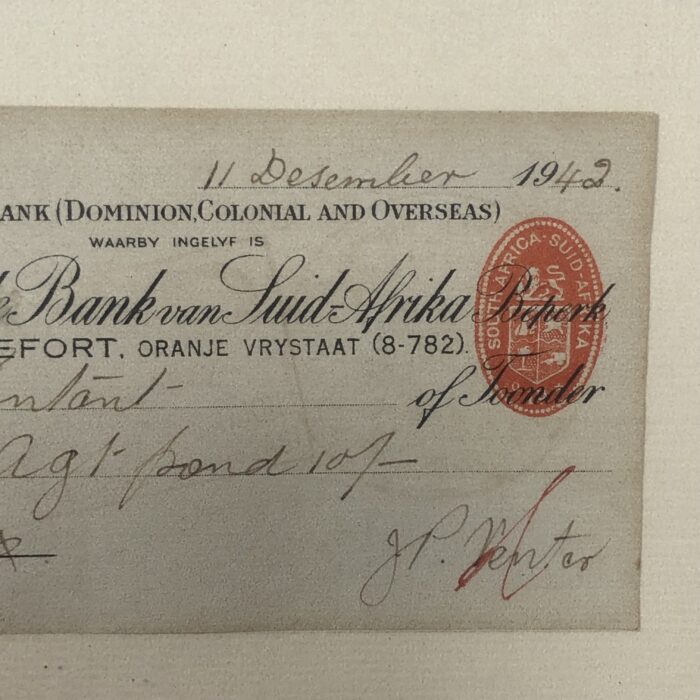 11 Desember 1942.
ANK (DOMINION, COLONIAL AND OVERSEAS)
WAARBY INGELYF IS
e Bank van Suid-Afrika Beperk
EFORT, ORANJE VRYSTAAT (8-782).
SOUTH AFRICA · SUID-AFRIKA
ntant of Toonder
Agt pond 10/-
J P. Venter